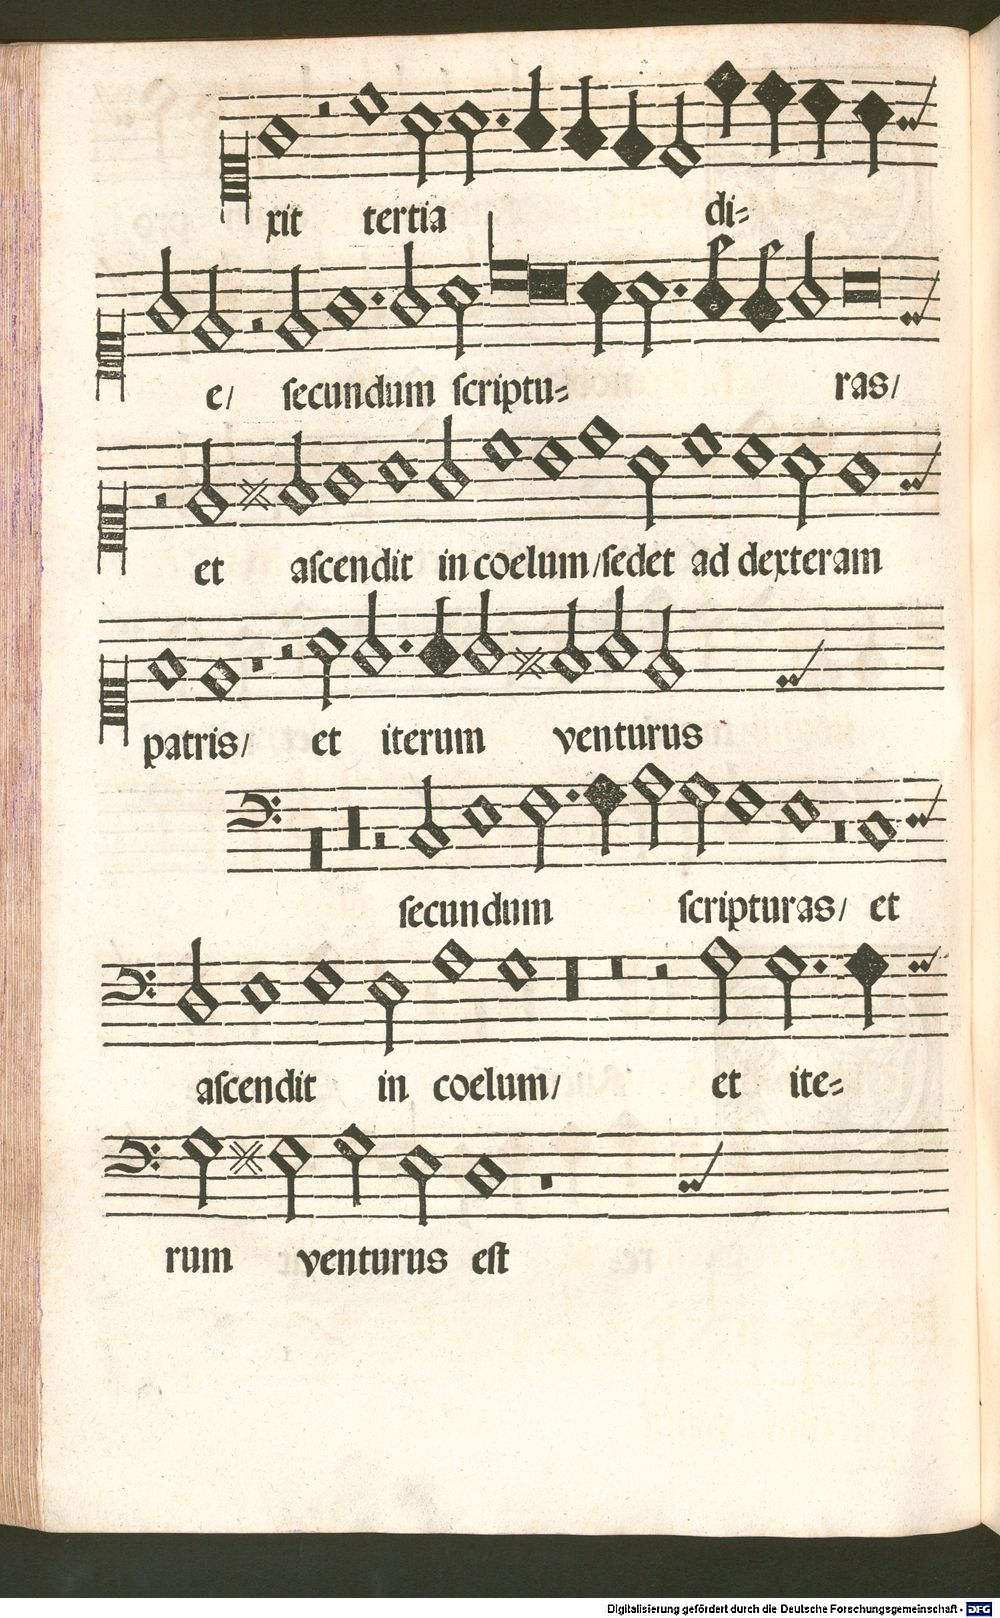 xit tertia di=
e/ ſecundum ſcriptu= ras/
et aſcendit in coelum/ſedet ad dexteram
patris/ et iterum venturus
ſecundum ſcripturas/ et
aſcendit in coelum/ et ite=
rum venturus eſt
Digitalisierung gefördert durch die Deutsche Forschungsgemeinschaft - DFG